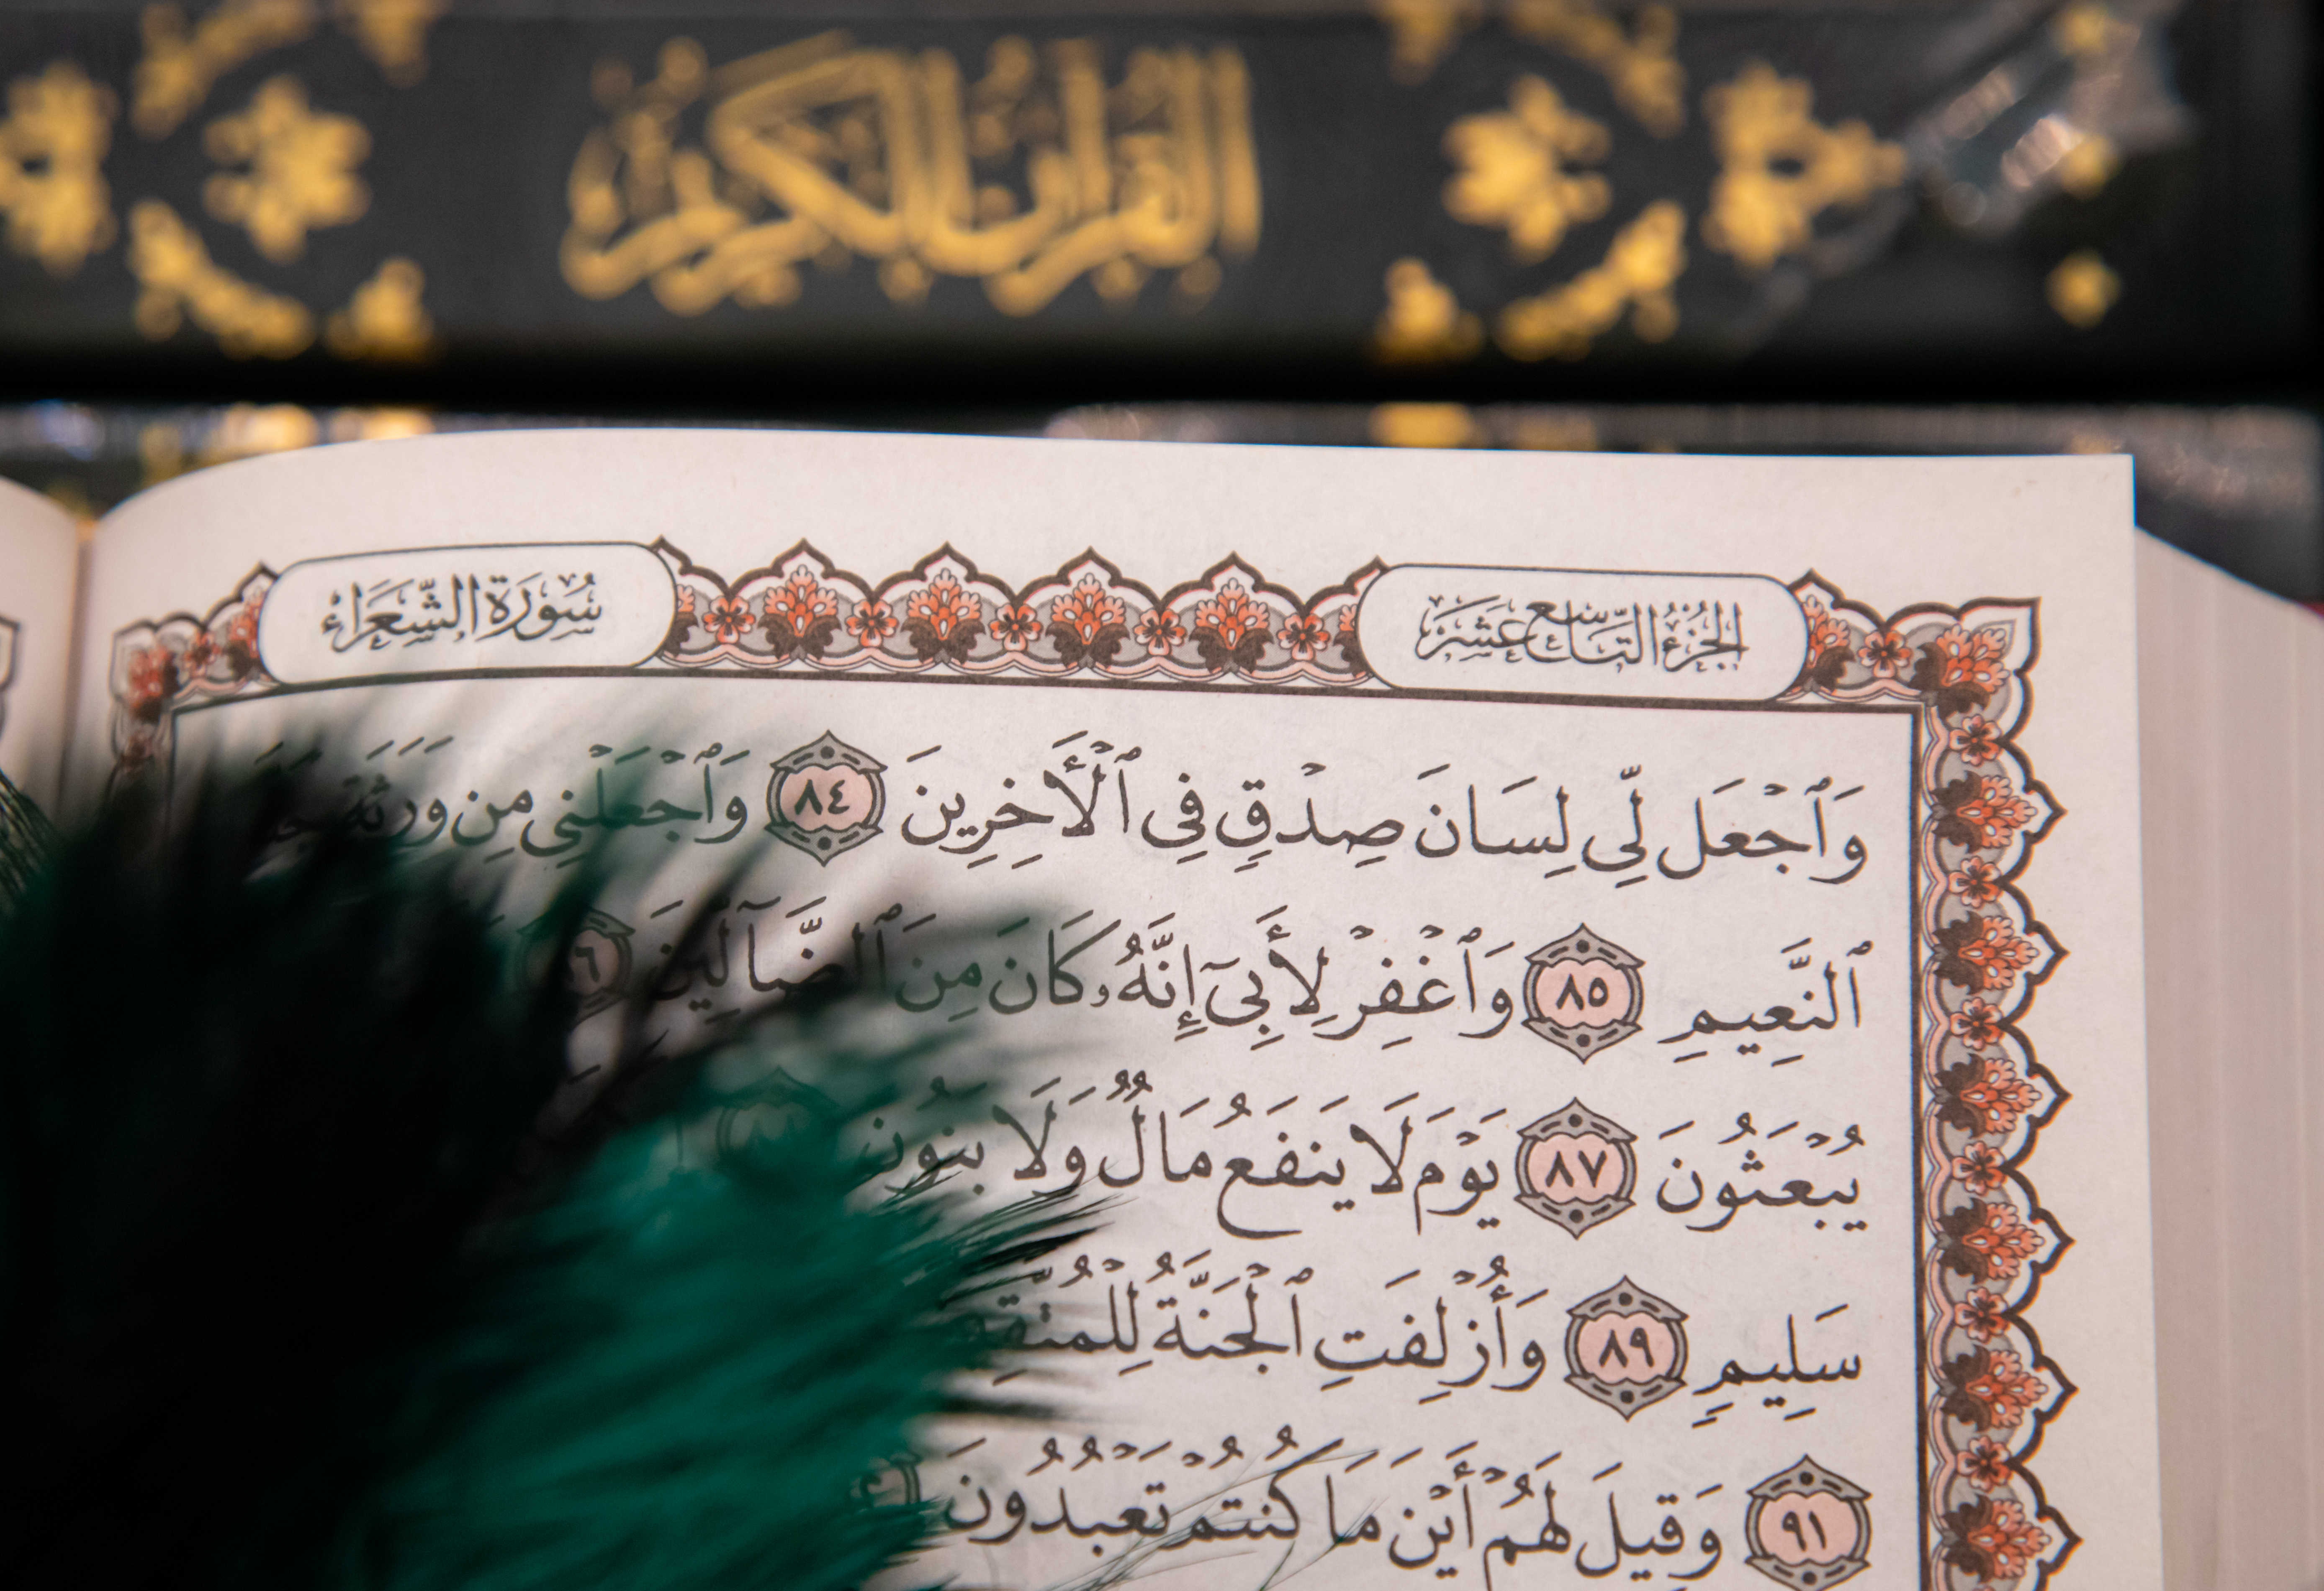 القرآن الكريم
الجزء التاسع عشر
سُورَةُ الشُّعَرَاء
وَٱجْعَل لِّى لِسَانَ صِدْقٍ فِى ٱلْأَخِرِينَ ٨٤ وَٱجْعَلْنِى مِن وَرَثَةِ
ٱلنَّعِيمِ ٨٥ وَٱغْفِرْ لِأَبِىٓ إِنَّهُۥ كَانَ مِنَ ٱلضَّآلِّينَ
يُبْعَثُونَ ٨٧ يَوْمَ لَا يَنفَعُ مَالٌ وَلَا بَنُونَ
سَلِيمٍ ٨٩ وَأُزْلِفَتِ ٱلْجَنَّةُ
٩١ وَقِيلَ لَهُمْ أَيْنَ مَا كُنتُمْ تَعْبُدُونَ